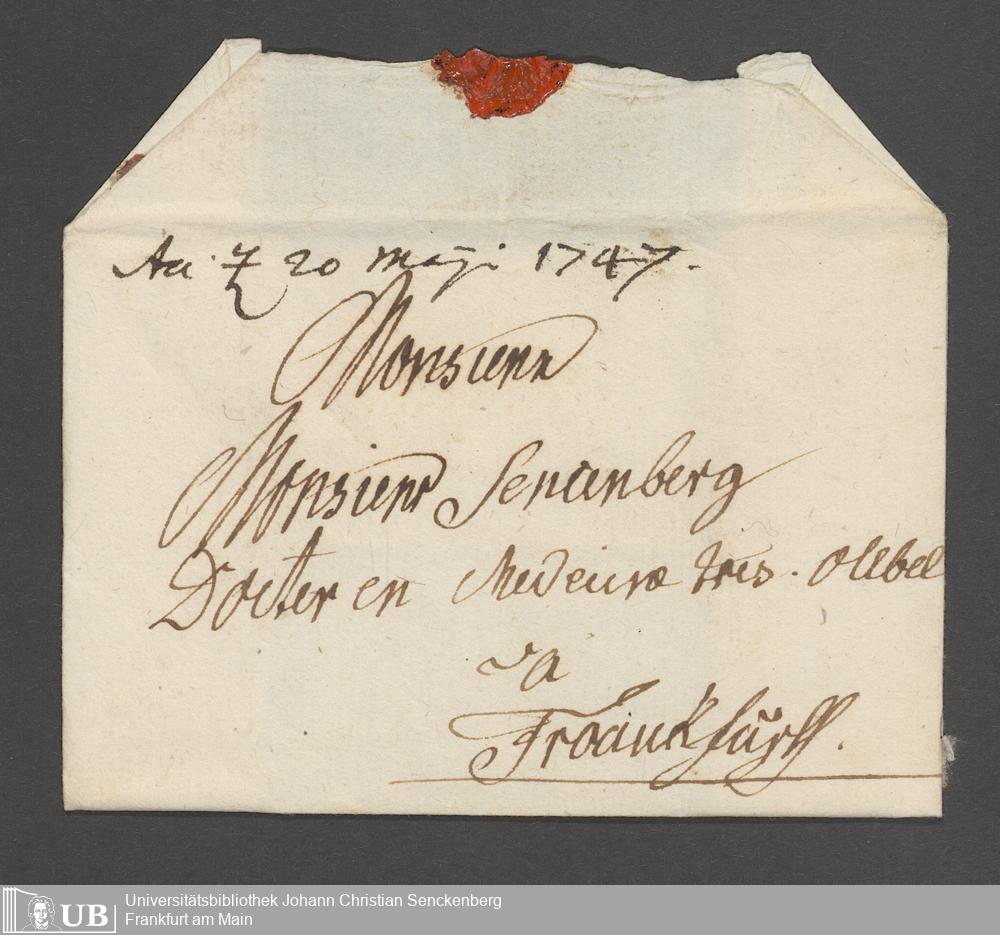 Acc. ♃ 20 Maji 1747.
Monsieur
Monsieur Senckenberg
Docter en Medecine tres. celebre
a
Franckfurth.
UB Universitätsbibliothek Johann Christian Senckenberg
Frankfurt am Main